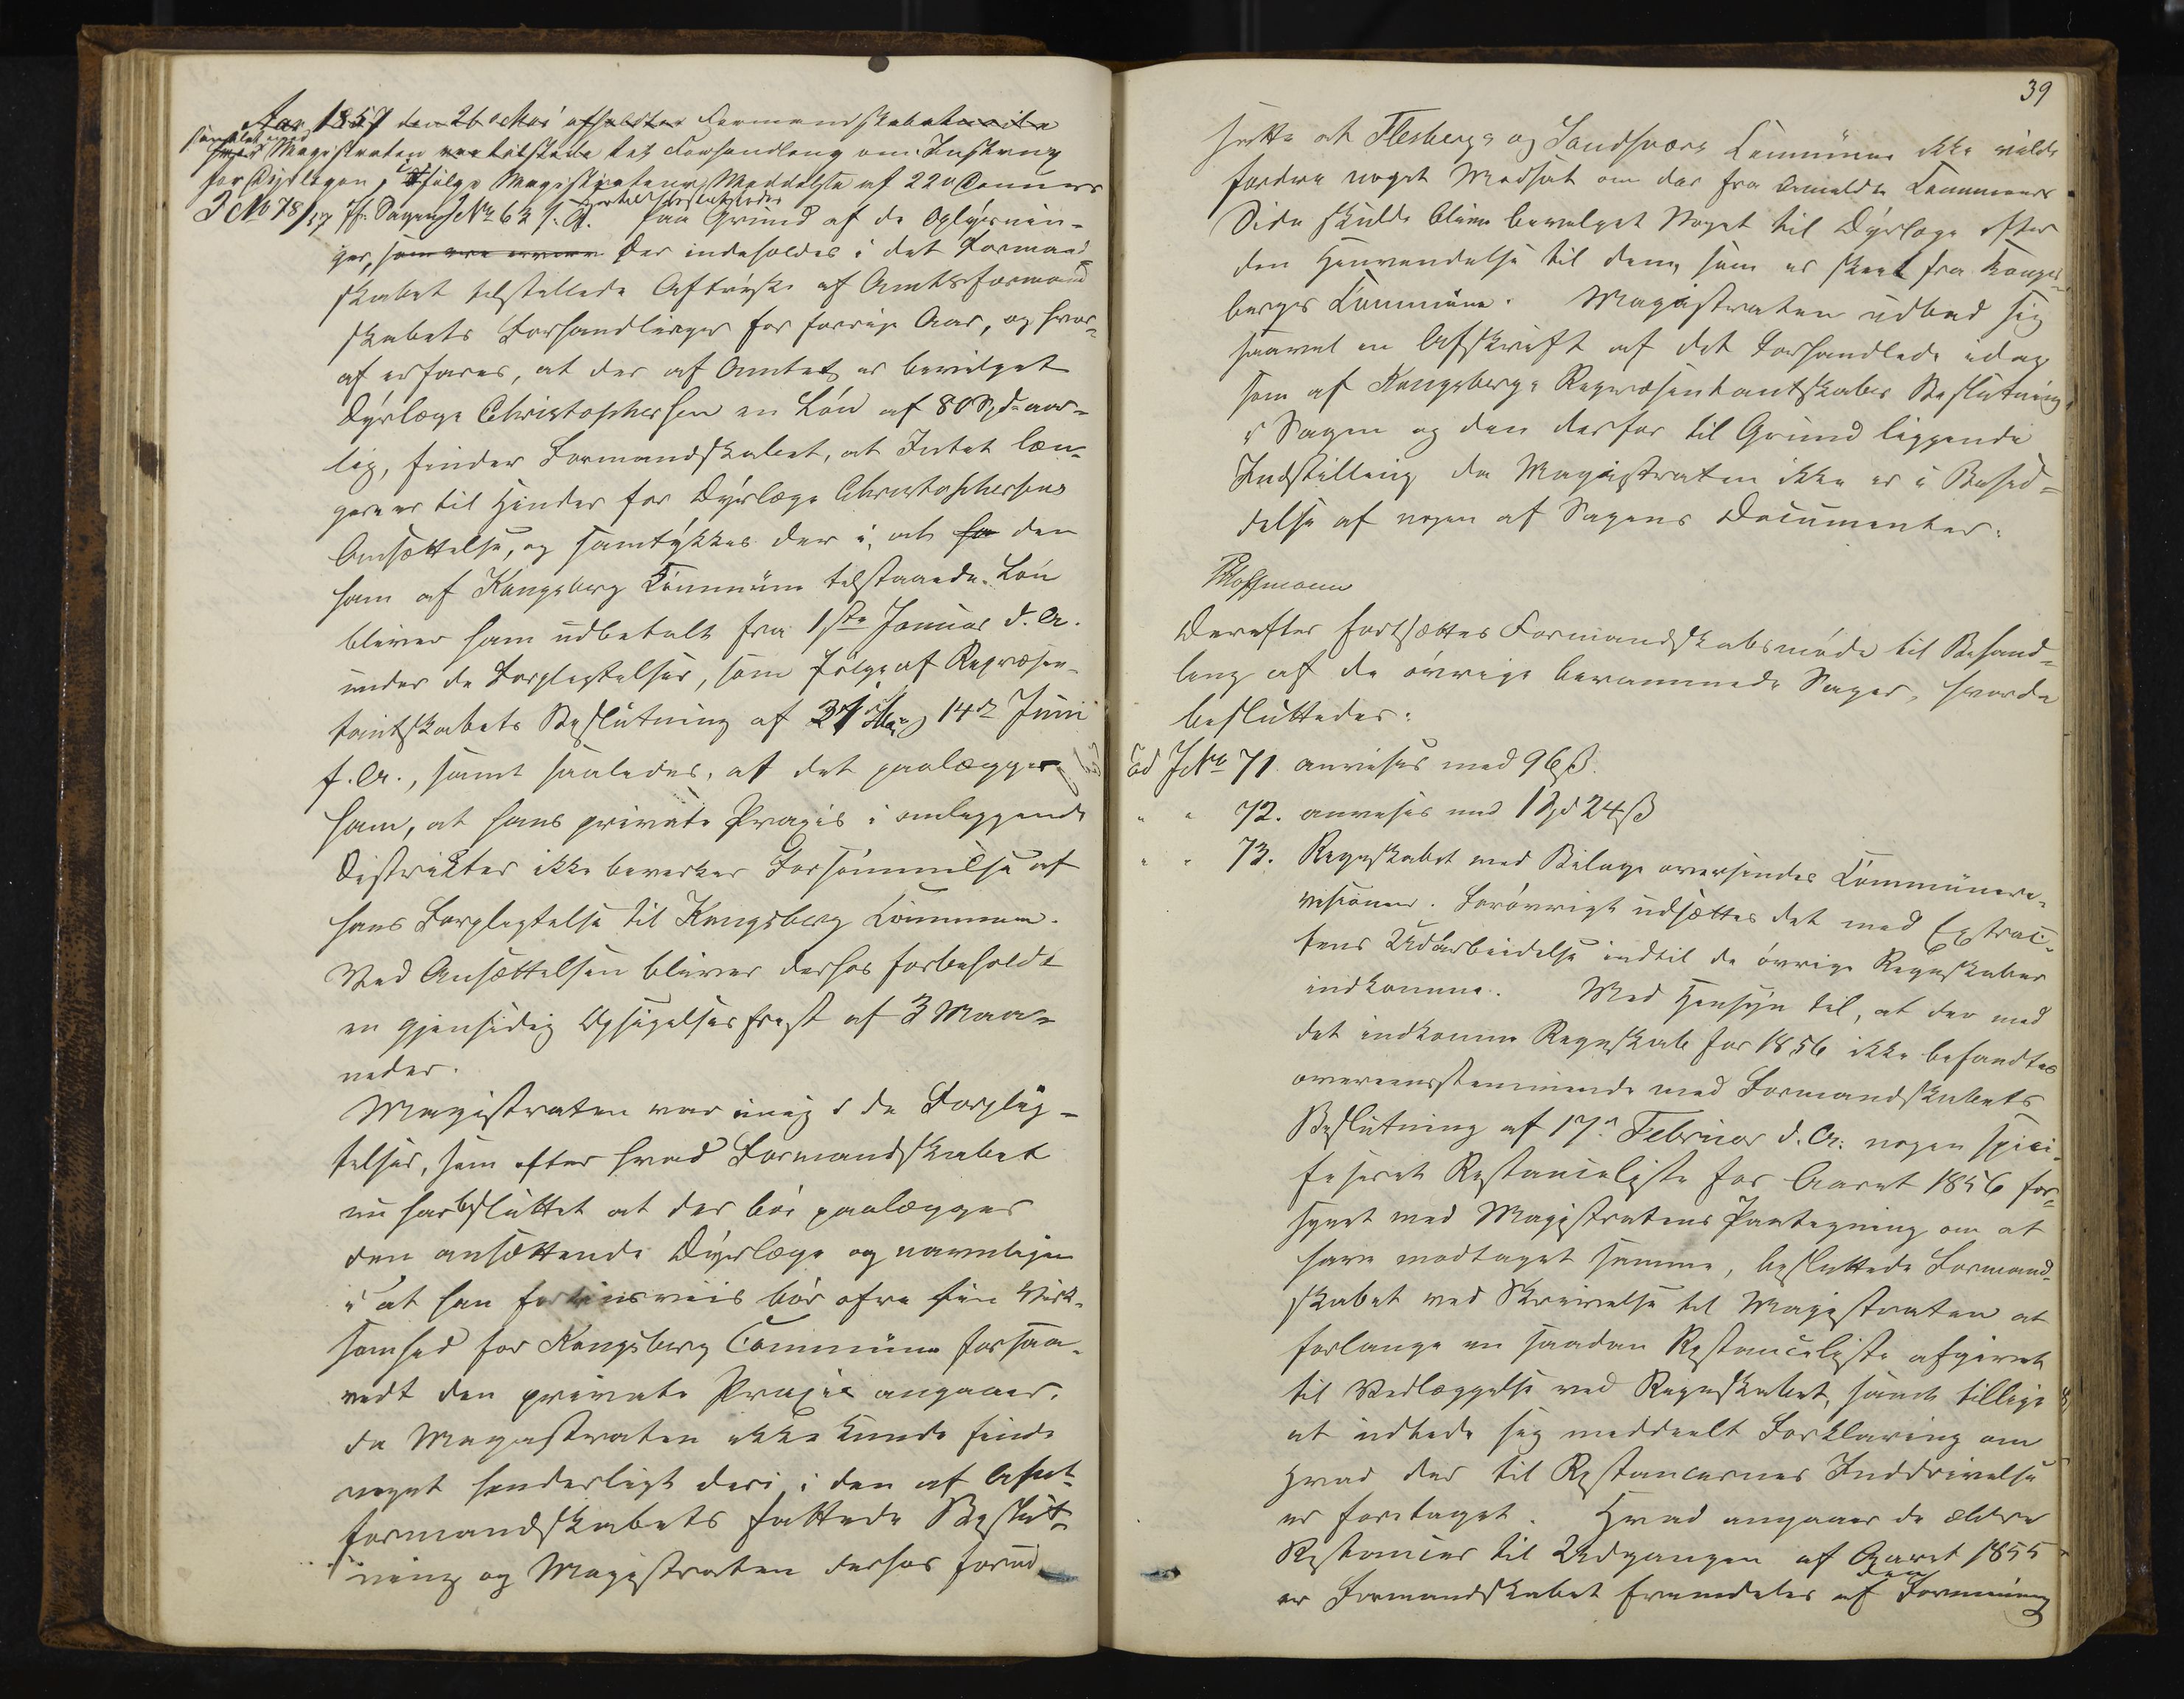 Aar 1857 den 26de Mai afholdtes Formandskabet
samlet med Magistraten var tilstede til Forhandling om Instrux
for Dyrlægen, ifølge Magistratens Meddelelse af 22de dennes
J No 78/57 jfr. Sagen J No 62 f. A. Hertil besluttedes Paa Grund af de Oplysnin-
ger, som Der indeholdes i det Formand-
skabet tilstillede Aftryk af Amtsformand
skabets Forhandlinger for forrige Aar, og hvor-
af erfares, at der af Amtet er bevilget
Dyrlæge Christophersen en Løn af 80 Spd aar-
lig, finder Formandskabet, at Intet læn-
gere er til Hinder for Dyrlæge Christophersens
Ansættelse, og samtykkes der i, at den
ham af Kongsberg Commune tilstaaede Løn
bliver ham udbetalt fra 1ste Januar d. A.
under de Forpligtelser, som følge af Repræsen-
tantskabets Beslutning af 14de Juni
f. A., samt saaledes, at det paalægges
ham, at hans private Praxis i omliggende
Distrikter ikke bevirker Forsømmelse af
hans Forpligtelse til Kongsberg Commune.
Ved Ansættelsen bliver derhos forbeholdt
en gjensidig Opsigelsesfrist af 3 Maa-
neder.
Magistraten var enig i de Forplig-
telser, som efter hvad Formandskabet
nu har besluttet at der bør paalægges
den ansættende Dyrlæge og navnligen
i at han fortrinsviis bør ofre sin Virk-
somhed for Kongsberg Commune forsaa-
vidt den private Praxis angaaer,
da Magistraten ikke kunde finde
noget hinderligt deri i den af Amt-
formandskabets fattede Beslut-
ning og Magistraten derhos forud
39
satte at Flesbergs og Sandsværs Commune ikke vilde
fordre noget Modsat om der fra Anmeldte Communers
Side skulde blive bevilget Noget til Dyrlæge efter
den Henvendelse til dem, som er skeet fra Kongs-
bergs Commune. Magistraten udbad sig
saavel en Afskrift af det Forhandlede idag
som af Kongsbergs Repræsentantskabs Beslutning
i Sagen og den derfor til Grund liggende
Indstilling da Magistraten ikke er i Besid-
delse af nogen af Sagens Documenter.
Hoffmann
Derefter fortsættes Formandskabsmøde til Behand-
ling af de øvrige berammede Sager, hvorda
besluttedes:
Ad J No 71. anvises med 96 ß.
" " 72. anvises med 1 Spd 24 ß
" " 73. Regnskabet med Bilage oversendes Communere-
visionen. Forøvrigt udsættes det med Extrac-
tens Udarbeidelse indtil de øvrige Regnskaber
indkomme. Med Hensyn til, at der med
det indkomne Regnskab for 1856 ikke befandtes
overeensstemmende med Formandskabets
Beslutning af 17de Februar d. A. nogen speci-
ficeret Restanceliste for Aaret 1856 for-
synet med Magistratens Paategning om at
have modtaget samme, besluttede Formand-
skabet ved Skrivelse til Magistraten at
forlange en saadan Restanceliste afgivet
til Vedlæggelse ved Regnskabet, samt tillige
at udbede sig meddeelt Forklaring om
Hvad der til Restancernes Inddrivelse
er foretaget. Hvad angaaer de ældre
Restancer til Udgangen af Aaret 1855
er Formandskabet fremdeles af den Formening